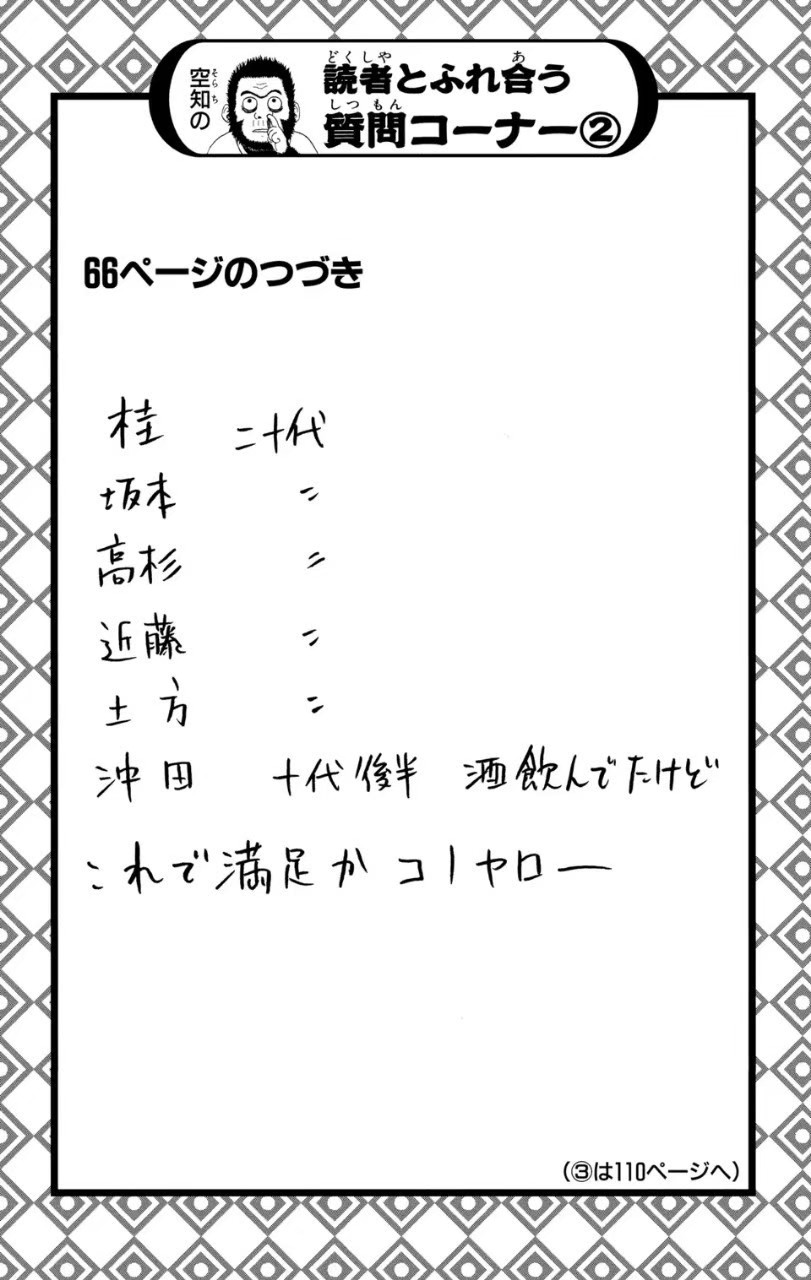 空知の
読者とふれ合う
質問コーナー②
66ページのつづき
桂 二十代
坂本 〃
高杉 〃
近藤 〃
土方 〃
沖田 十代後半 酒飲んでたけど
これで満足か コノヤロー
(③は110ページへ)